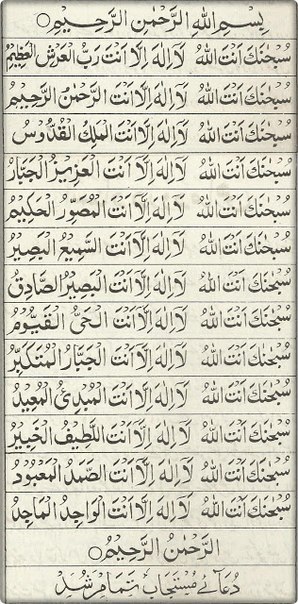 بِسْمِ اللهِ الرَّحْمٰنِ الرَّحِيْمِ○
سُبْحٰنَكَ اَنْتَ اللهُ لَآ اِلٰهَ اِلَّا اَنْتَ رَبُّ الْعَرْشِ الْعَظِيْمِ
سُبْحٰنَكَ اَنْتَ اللهُ لَآ اِلٰهَ اِلَّا اَنْتَ الرَّحْمٰنُ الرَّحِيْمُ
سُبْحٰنَكَ اَنْتَ اللهُ لَآ اِلٰهَ اِلَّا اَنْتَ الْمَلِكُ الْقُدُّوْسُ
سُبْحٰنَكَ اَنْتَ اللهُ لَآ اِلٰهَ اِلَّا اَنْتَ الْعَزِيْزُ الْجَبَّارُ
سُبْحٰنَكَ اَنْتَ اللهُ لَآ اِلٰهَ اِلَّا اَنْتَ الْمُصَوِّرُ الْحَكِيْمُ
سُبْحٰنَكَ اَنْتَ اللهُ لَآ اِلٰهَ اِلَّا اَنْتَ السَّمِيْعُ الْبَصِيْرُ
سُبْحٰنَكَ اَنْتَ اللهُ لَآ اِلٰهَ اِلَّا اَنْتَ الْبَصِيْرُ الصَّادِقُ
سُبْحٰنَكَ اَنْتَ اللهُ لَآ اِلٰهَ اِلَّا اَنْتَ الْحَىُّ الْقَيُّوْمُ
سُبْحٰنَكَ اَنْتَ اللهُ لَآ اِلٰهَ اِلَّا اَنْتَ الْجَبَّارُ الْمُتَكَبِّرُ
سُبْحٰنَكَ اَنْتَ اللهُ لَآ اِلٰهَ اِلَّا اَنْتَ الْمُبْدِئُ الْمُعِيْدُ
سُبْحٰنَكَ اَنْتَ اللهُ لَآ اِلٰهَ اِلَّا اَنْتَ اللَّطِيْفُ الْخَبِيْرُ
سُبْحٰنَكَ اَنْتَ اللهُ لَآ اِلٰهَ اِلَّا اَنْتَ الصَّمَدُ الْمَعْبُوْدُ
سُبْحٰنَكَ اَنْتَ اللهُ لَآ اِلٰهَ اِلَّا اَنْتَ الْوَاجِدُ الْمَاجِدُ
الرَّحْمٰنُ الرَّحِيْمُ○
دُعَآئے مُسْتَجَابْ تَمَام شُدْ